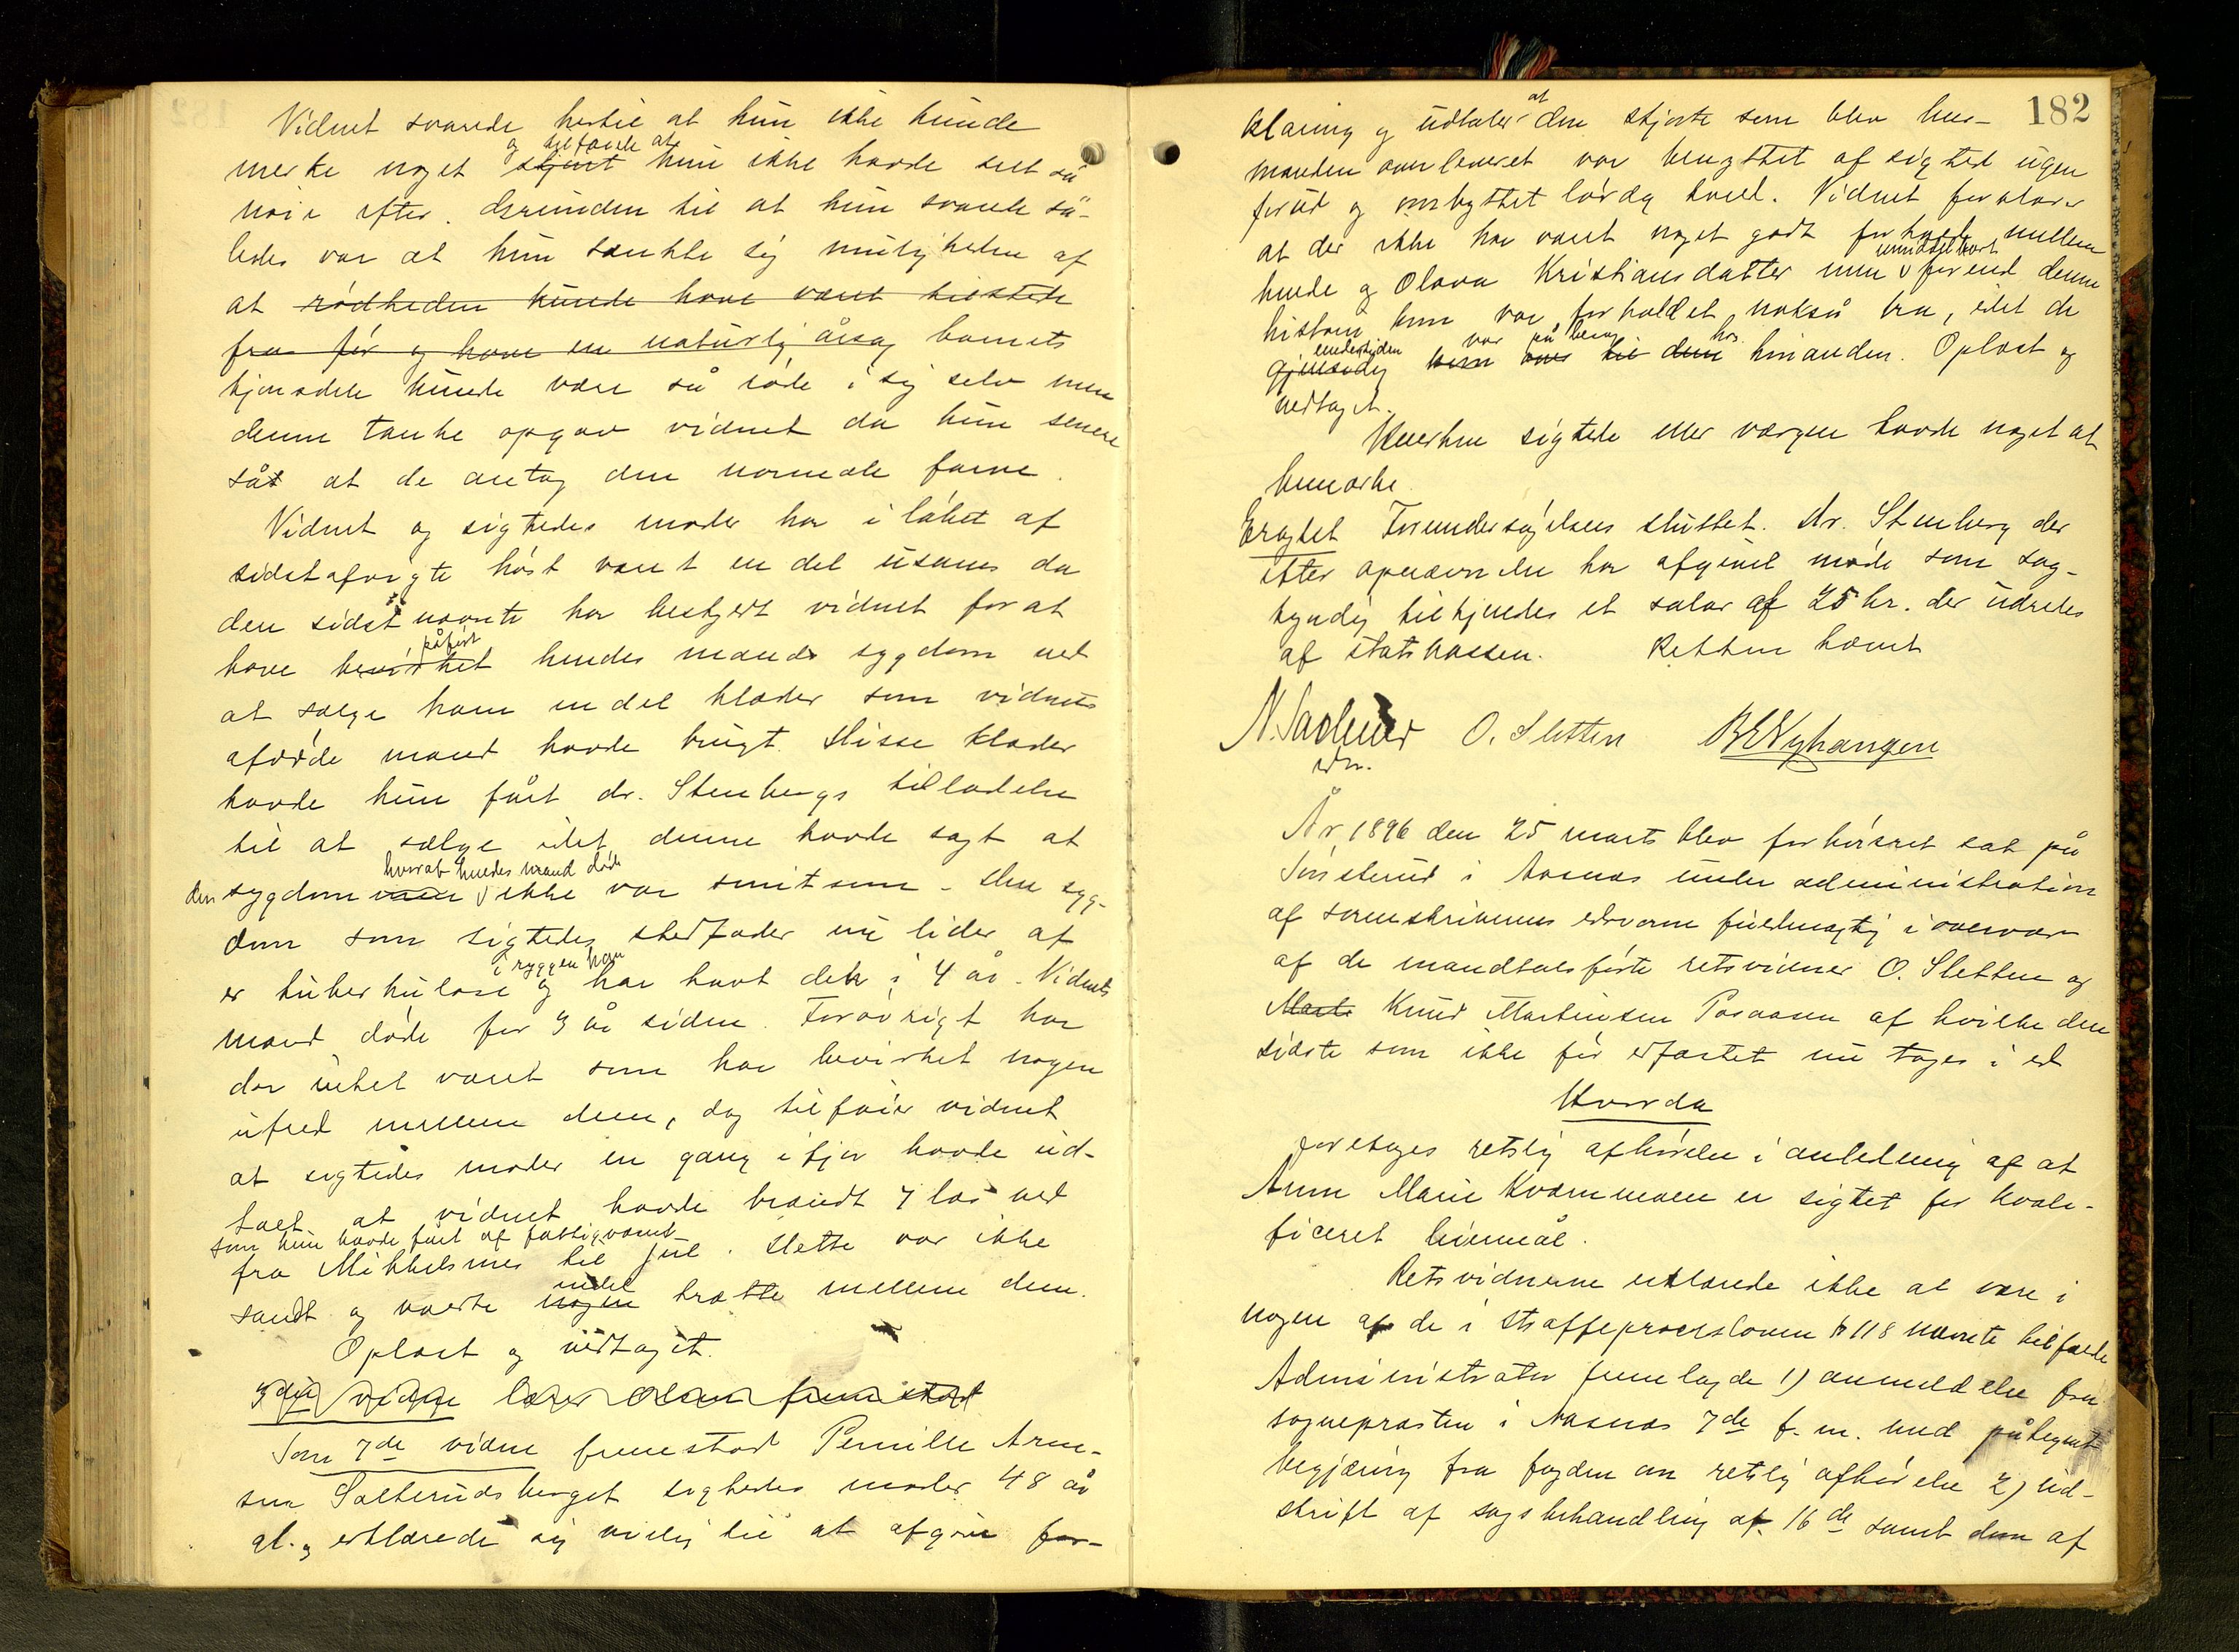 Vidnet svarede hertil at hun ikke kunde
og tilføiede at
merke noget skjønt hun ikke havde seet så
nøie efter. Grunden til at hun svarede så-
ledes var at hun tænkte sig muligheden af
at rødheden kunde have været tilstede
fra før og have en naturlig årsag barnets
kjønsdele kunde være så røde i sig selv men
denne tanke opgav vidnet da hun senere
såt at de antog den normale farve.
Vidnet og sigtedes moder har i løbet af
sidstafvigte høst været en del usams da
den sidstnævnte har beskyldt vidnet for at
påført
have bevirket hendes mands sygdom ved
at sælge ham en del klæder som vidnets
afdøde mand havde brugt. Disse klæder
havde hun fået dr. Stenbergs tilladelse
til at sælge idet denne havde sagt at
hvoraf hendes mand døde
den sygdom ikke var smitsom. Den syg-
dom som sigtedes stedfader nu lider af
i ryggen han
er tuberkulose og har havt den i 4 år. Vidnets
mand døde for 3 år siden. Forøvrigt har
der intet været som har bevirket nogen
ufred mellem dem, dog tilføier vidnet
at sigtedes moder en gang ifjor havde ud-
talt at vidnet havde brændt 7 læs ved
som hun havde fået af fattigvæsnet
fra Mikkelsmes til jul. Dette var ikke
endel
sandt og vakte nogen trætte mellem dem.
Oplæst og vedtaget.
3die vidne
Som 7de vidne fremstod Pernille Arne-
sen Sætterudsberget sigtedes moder 48 år
gl. og erklærede sig villig til at afgive for-
182
at
klaring og udtaler den skjorte som blev lens-
manden overleveret var benyttet af sigtede ugen
forud og ombyttet lørdag kveld. Vidnet forklarer
at der ikke har været noget godt forhold mellem
umiddelbart
hende og Olava Kristiansdatter men førend denne
historie kom var forholdet nokså bra, idet de
undertiden var på besøg hos
gjensidig kom hinanden. Oplæst og
vedtaget.
Hverken sigtede eller værgen havde noget at
bemærke.
Eragtet Forundersøgelsen sluttet. Dr. Stenberg der
efter opnævnelse har afgivet møde som sag-
kyndig tilkjendes et salær af 25 kr. der udredes
af statskassen. Retten hævet
O. Sletten B E Nyhangen
År 1896 den 25 marts blev forhørsret sat på
Sønsterud i Aasnæs under administration
af sorenskriverens edsvorne fuldmægtig i overvær
af de mandtalsførte retsvidner O. Sletten og
Marti Knud Martinsen Posaasen af hvilke den
sidste som ikke før edfæstet nu tages i ed
Hvorda
foretages retslig afhørelse i anledning af at
Anne Marie Kvernmoen er sigtet for kvali-
ficeret leiermål.
Retsvidnerne erklærede ikke at være i
nogen af de i straffeprocesloven § 118 nævnte tilfælde
Administrator fremlagde 1) anmeldelse fra
sognepræsten i Aasnæs 7de f. m. med påtegnet
begjæring fra fogden om retslig afhørelse 2) ud-
skrift af sagsbehandling af 16de samt dom af